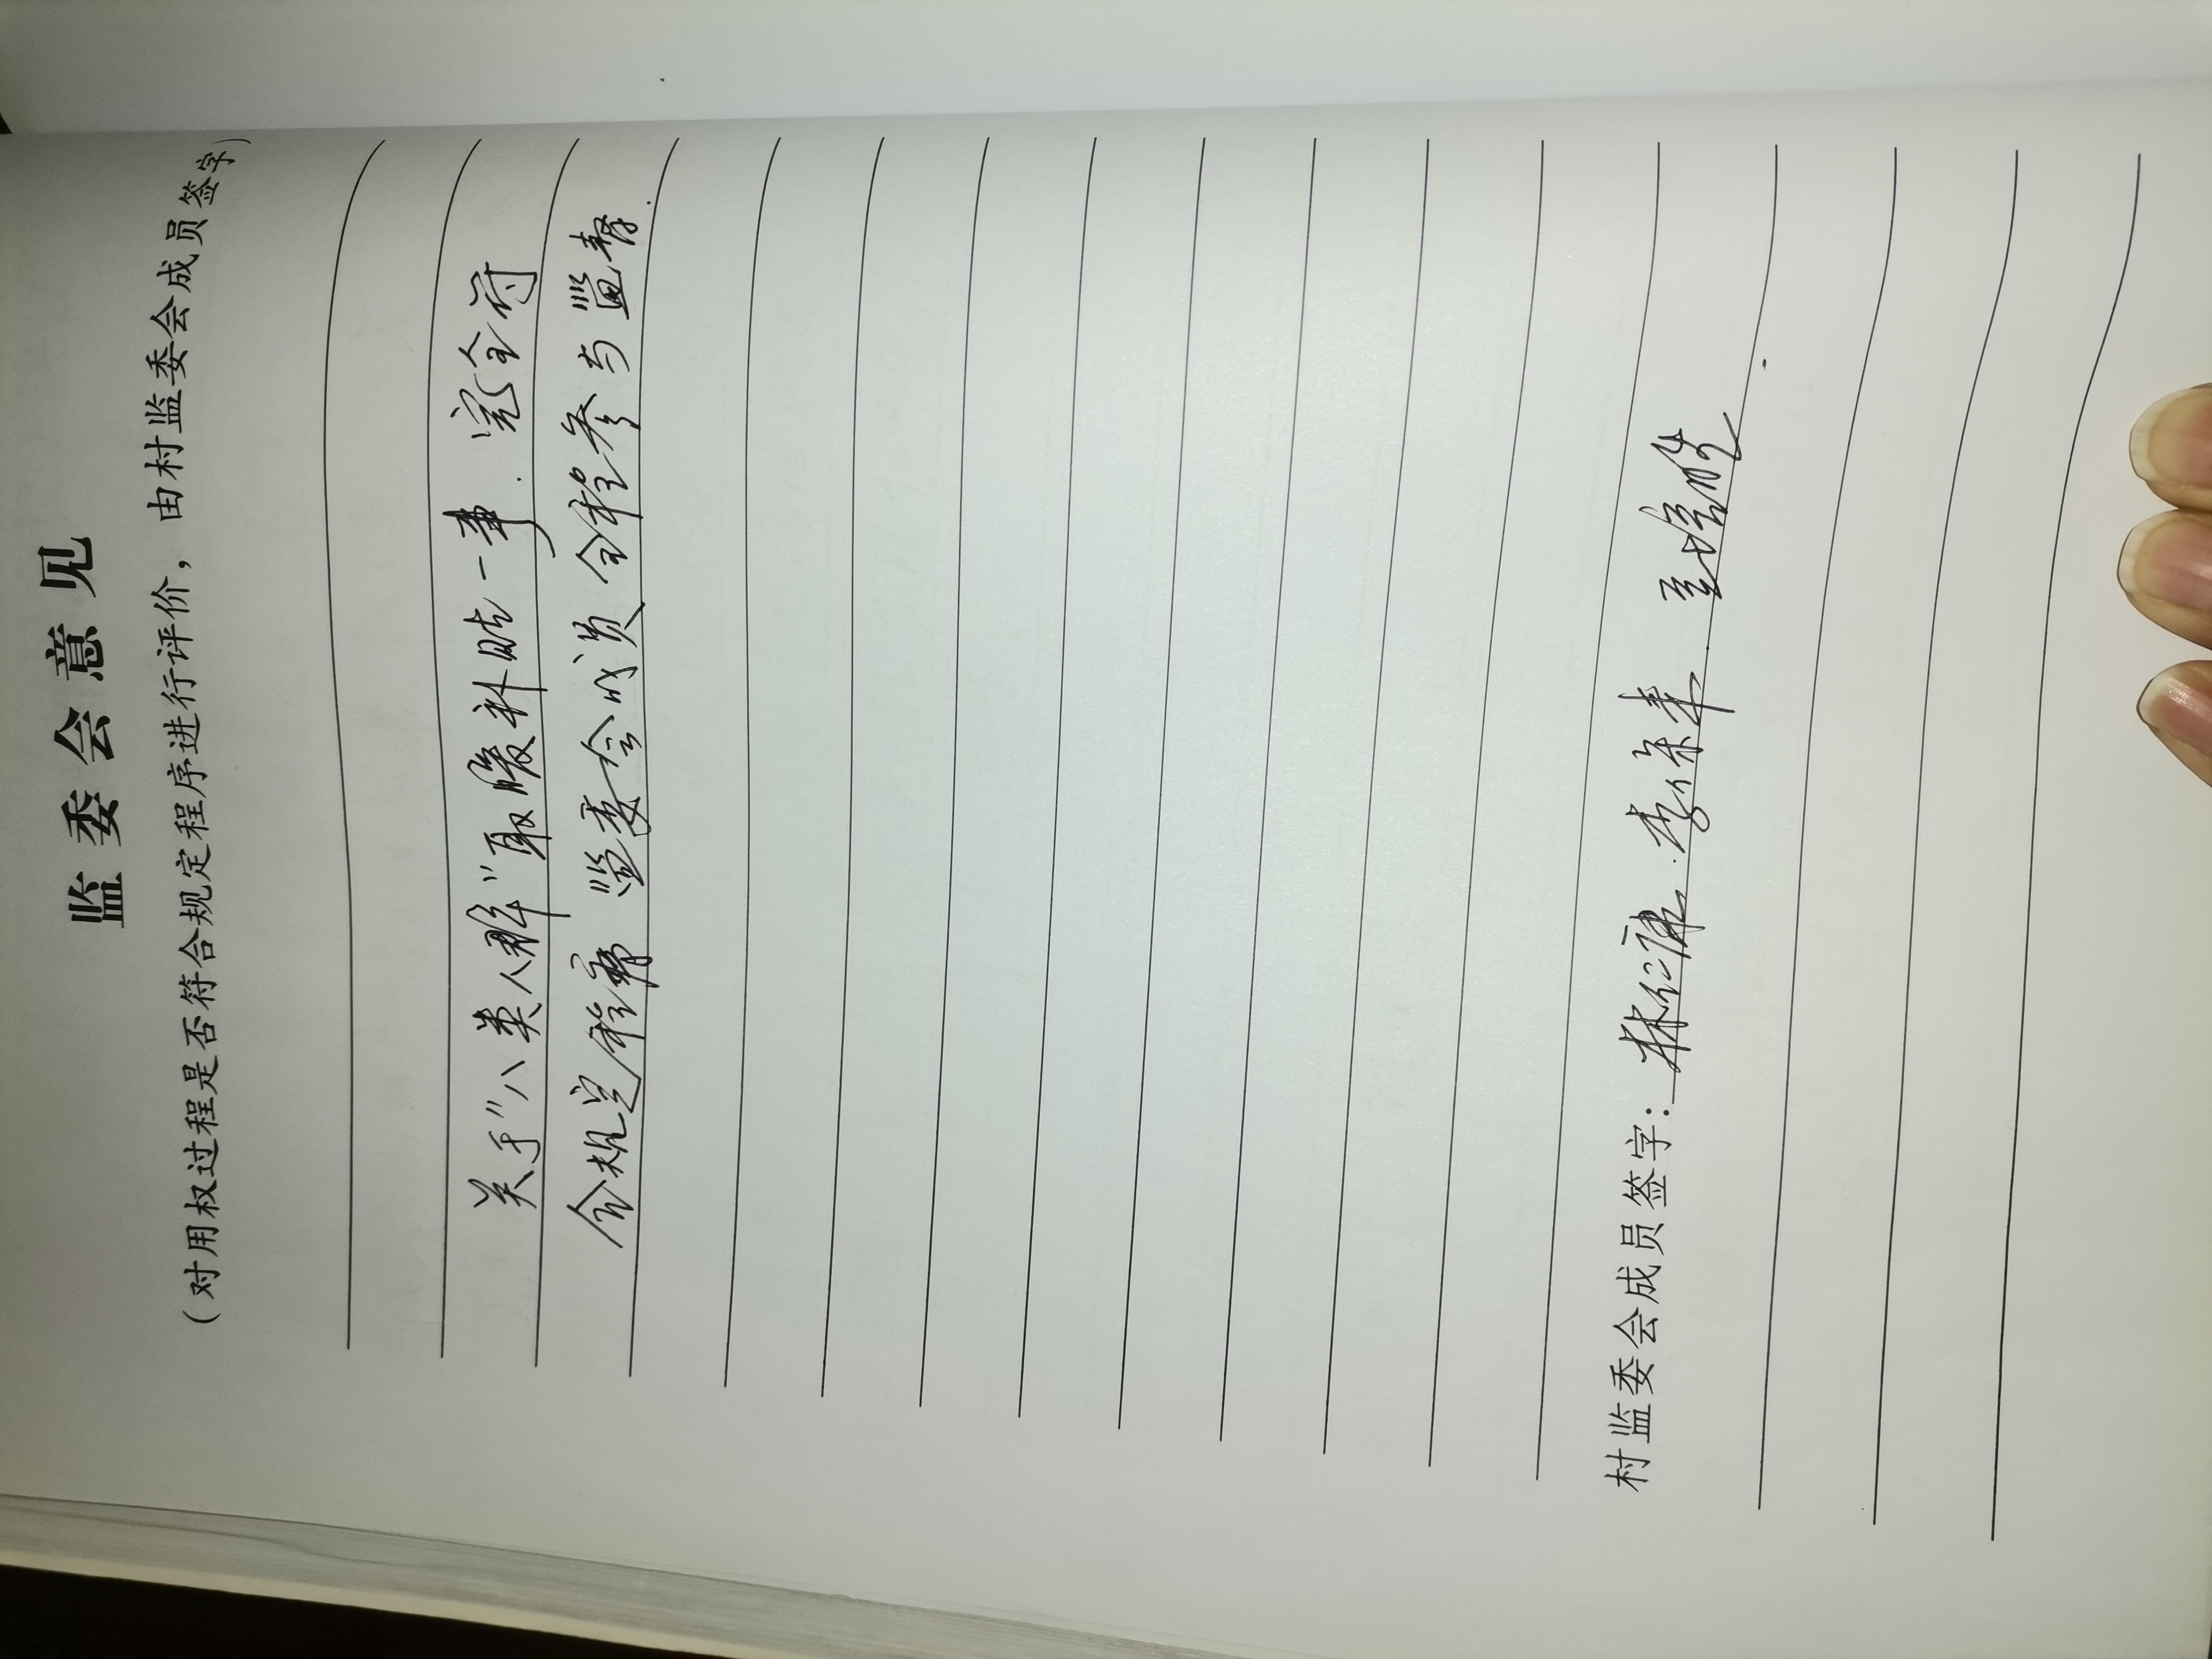 监委会意见
（对用权过程是否符合规定程序进行评价，由村监委会成员签字）
关于“八类人群”取暖补贴一事．完全符
合规定程序 监委会成员 全程参与监督．
村监委会成员签字：林仁康．李保来．王培胜．